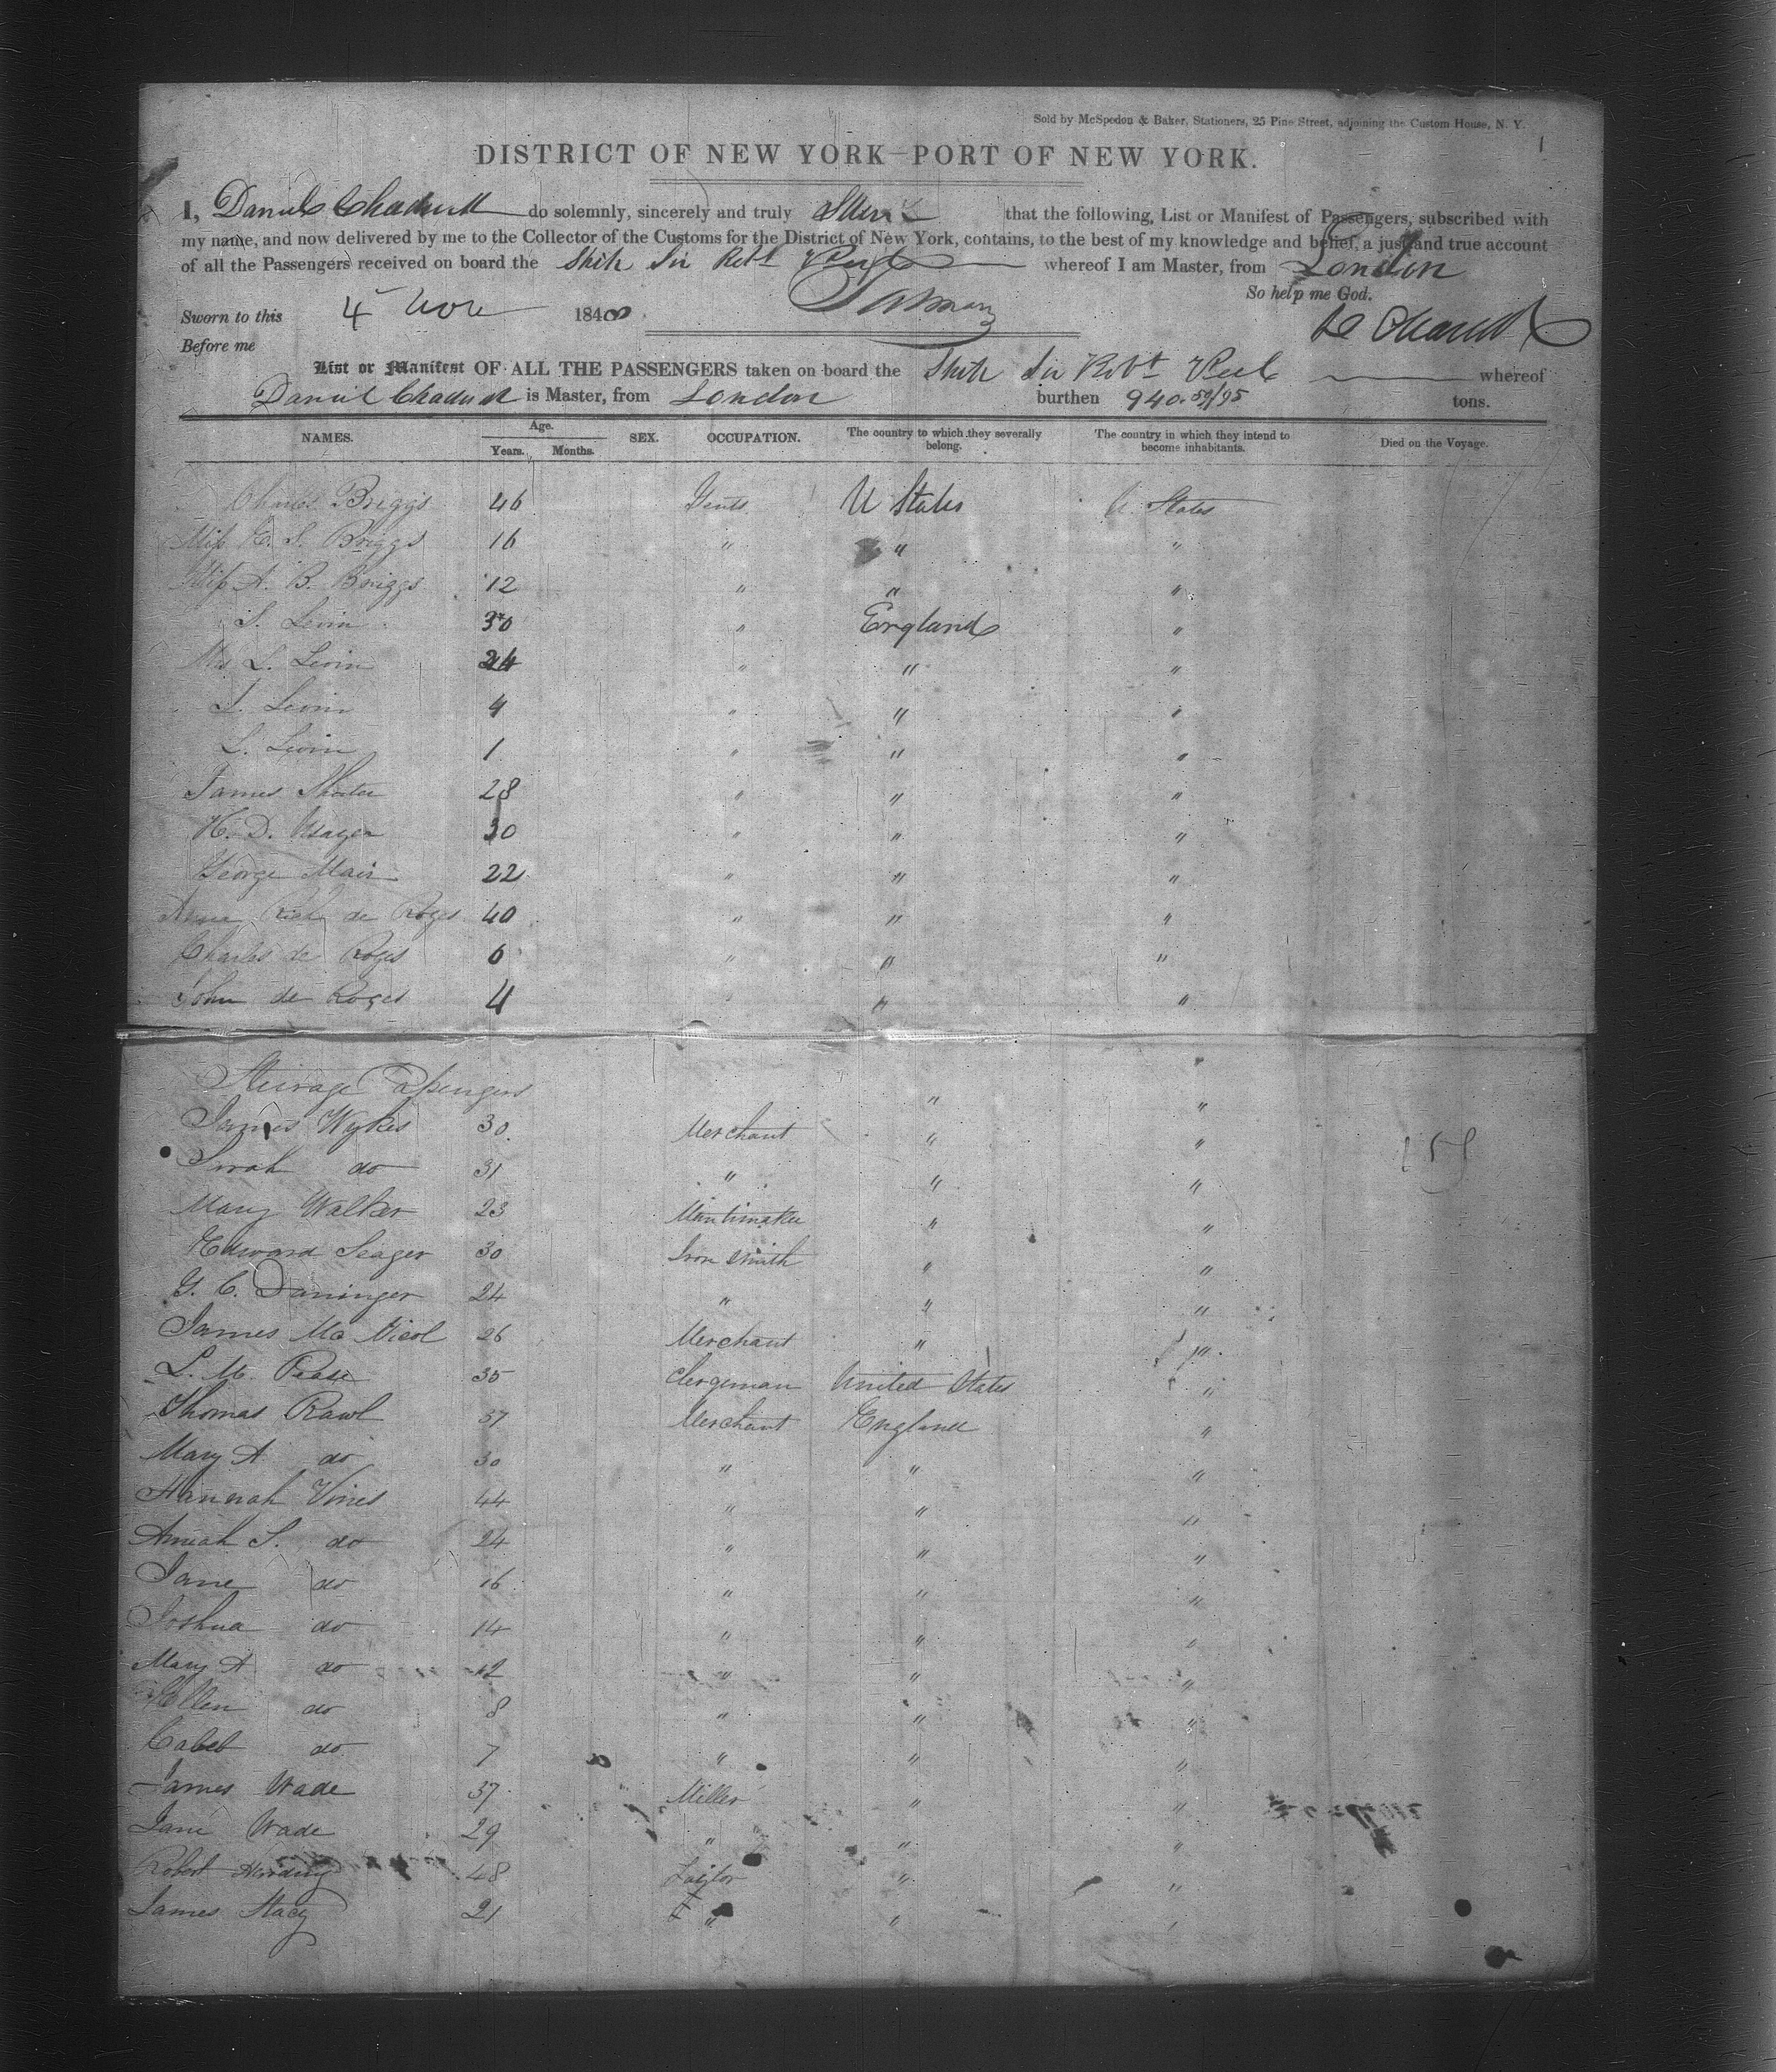 Sold by McSpedon & Baker, Stationers, 25 Pine Street, adjoining the Custom House, N. Y.
1
DISTRICT OF NEW YORK—PORT OF NEW YORK.
I, Daniel Chadwick do solemnly, sincerely and truly Swear that the following, List or Manifest of Passengers, subscribed with
my name, and now delivered by me to the Collector of the Customs for the District of New York, contains, to the best of my knowledge and belief, a just and true account
of all the Passengers received on board the Ship Sir Robt Peel whereof I am Master, from London
So help me God.
Sworn to this 4 Nov 1848
D Chadwick
Before me
List or Manifest OF ALL THE PASSENGERS taken on board the Ship Sir Robt Peel whereof
Daniel Chadwick is Master, from London burthen 940 59/95 tons.
NAMES. Age. Years. Months. SEX. OCCUPATION. The country to which they severally belong. The country in which they intend to become inhabitants. Died on the Voyage.
Charles Briggs 46 Gents U States U States
Miss E. S. Briggs 16 " " "
Miss A. B. Briggs 12 " " "
S. Levin 30 " England "
Mrs L. Levin 24 " " "
I. Levin 4 " " "
L. Levin 1 " " "
James Shorter 28 " " "
H. D. 30 " " "
George Mair 22 " " "
Anna de Roges 40 " " "
Charles de Roges 6 " " "
John de Roges 4 " " "
Steirage Passengers " "
James Wykes 30 Merchant " "
Sarah do 31 " " "
Mary Walker 23 Mantimaker " "
Edward Seager 30 Iron Smith " "
G. C. Daninger 24 " " "
James Mc Nicol 26 Merchant " "
L. M. Pease 35 Clergeman United States "
Thomas Rawl 37 Merchant England "
Mary A do 30 " " "
Hannah Vines 44 " " "
Amiah S. do 24 " " "
Jane do 16 " " "
Joshua do 14 " " "
Mary A do 12 " " "
Ellen do 8 " " "
Caleb do 7 " " "
James Wade 37 Miller " "
Jane Wade 29 " " "
Robert Harding 48 Taylor " "
James Stacy 21 " " "